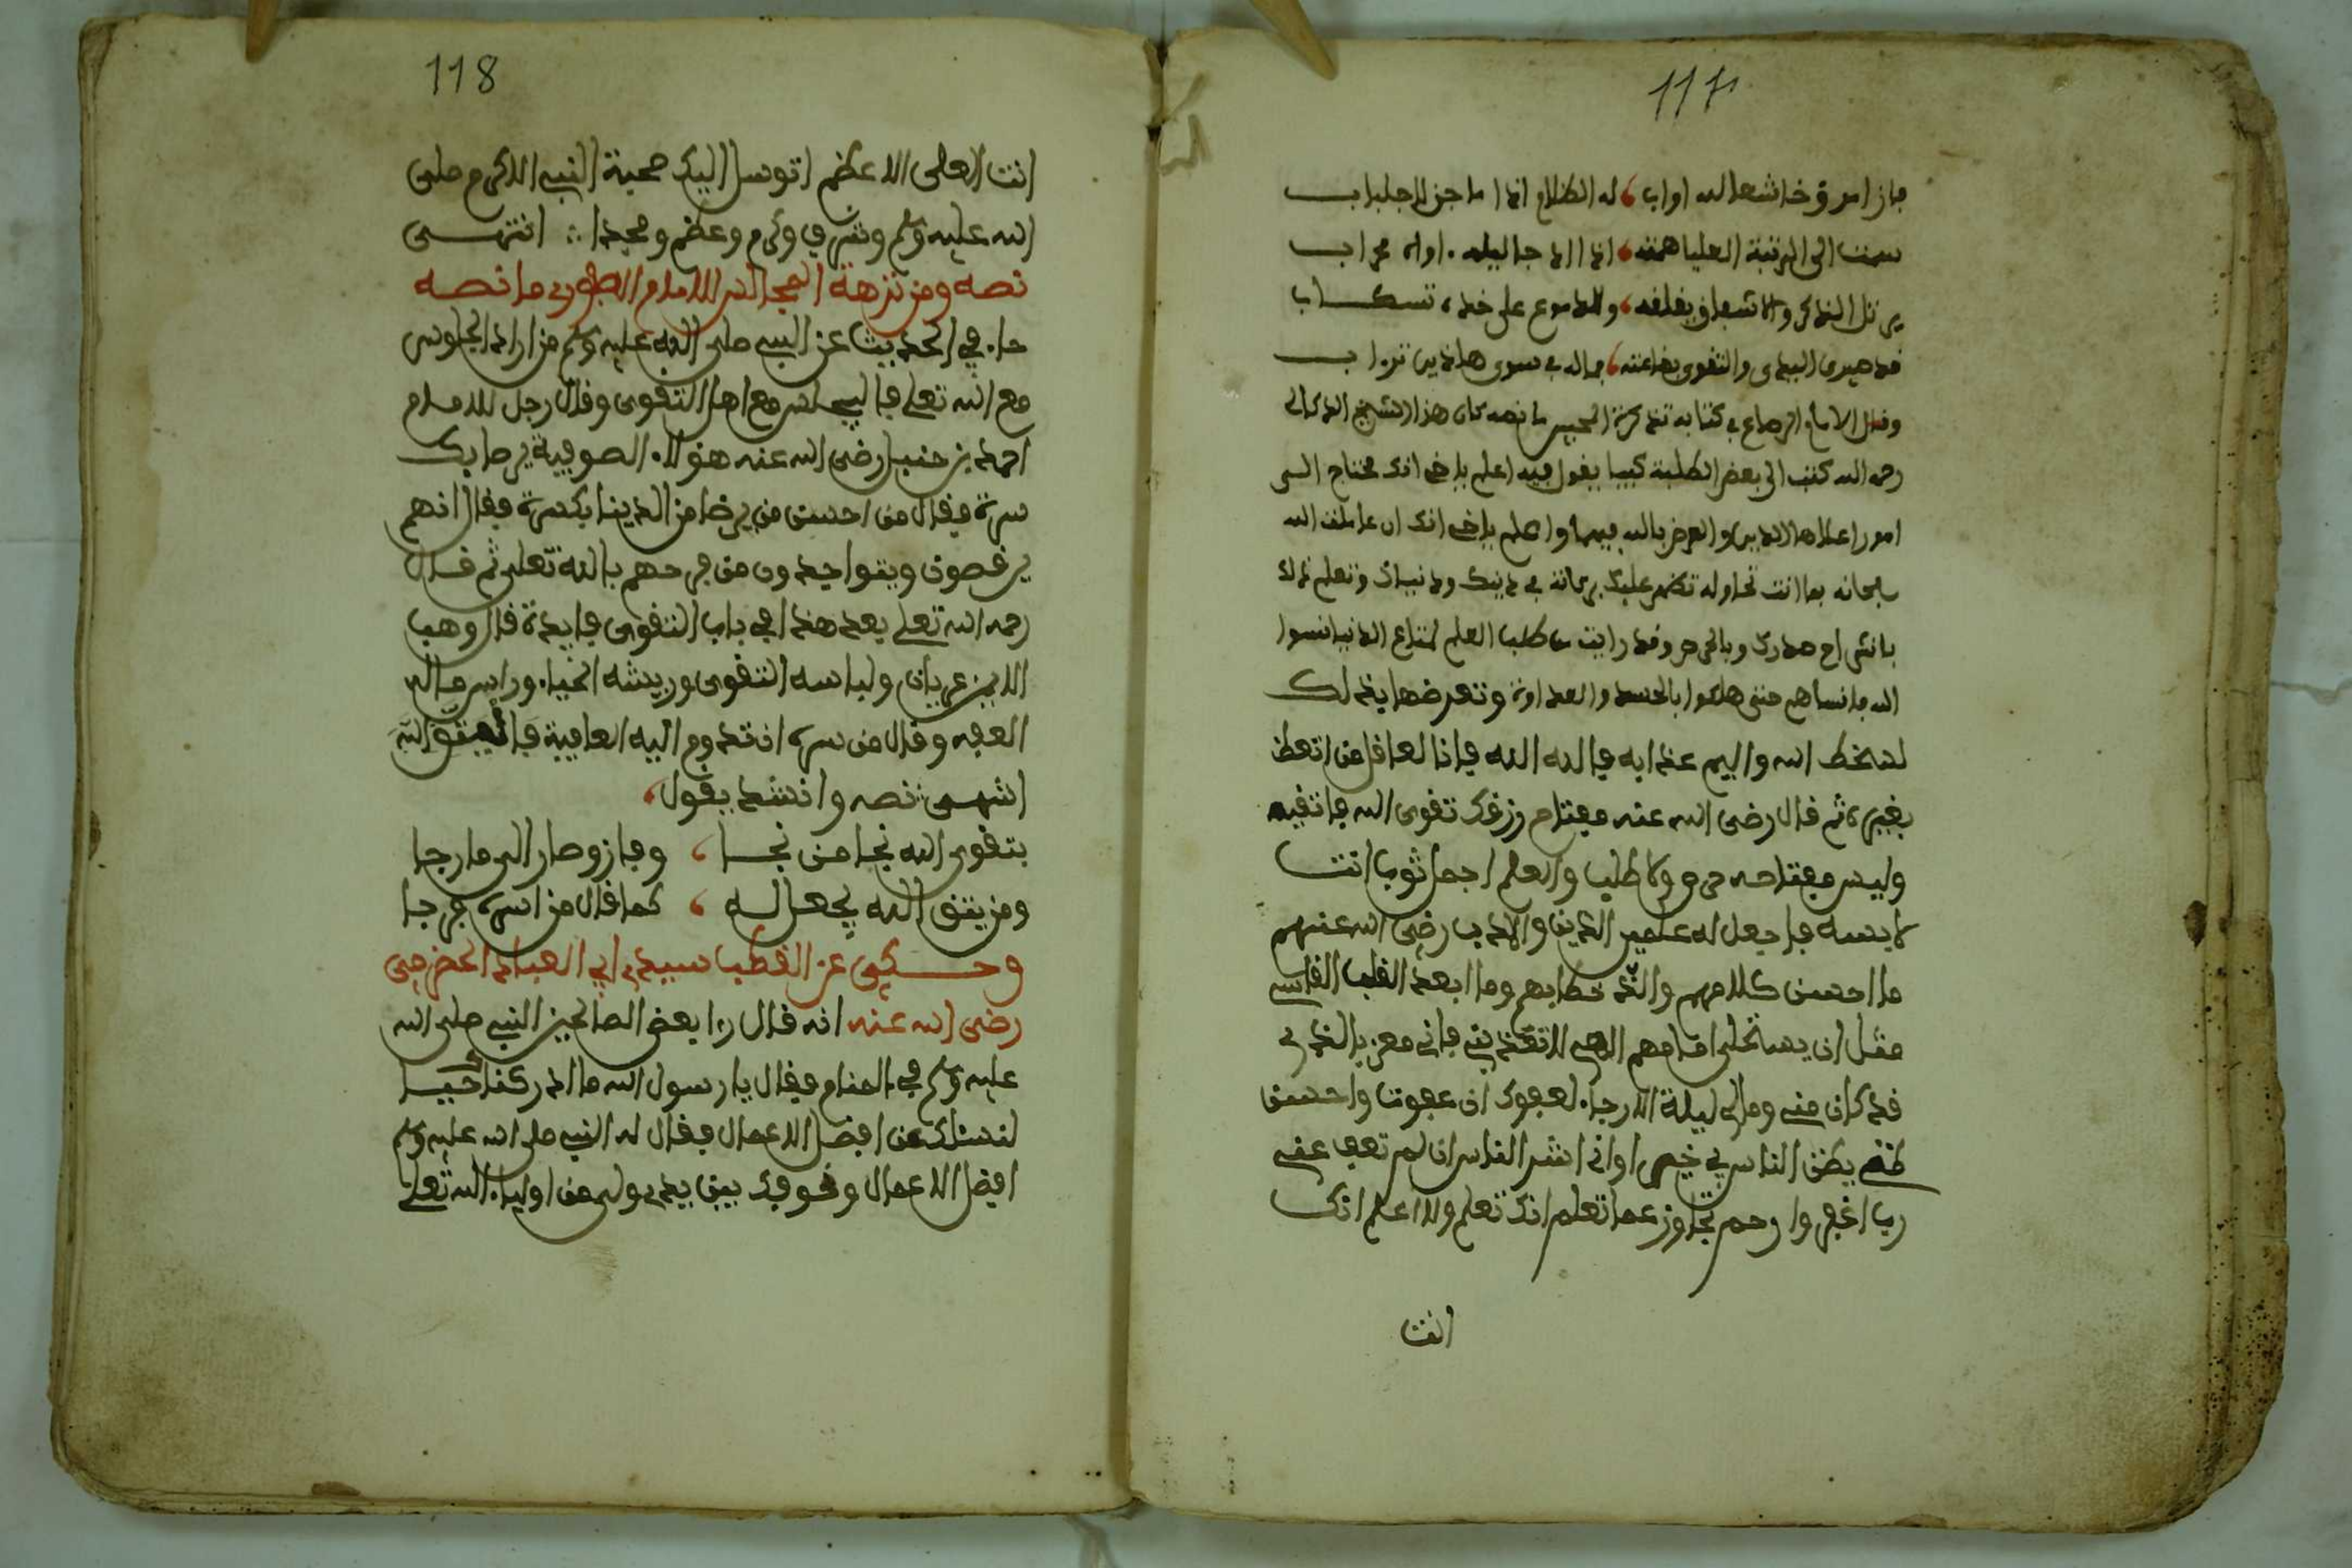 117
فاز امرؤ خاشعا لله اواب ، له الظلام اذا ما جن الجلباب
سمت الى الرتبة العليا همته ، اذا الدجا ليله . اواه محراب
يرتل الذكر والاشعاف بقلقه ، وللدموع على خديه تسكاب
قد صيرى البيدى والتقوى بضاعته ، فما له في سوى هاذين تراب
وقال الامام الرصاع في كتابه تذكرة المحبين ما نصه كان هذا الشيخ الدكالى
رحمه الله كتب الى بعض الطلبة كتبا يقول فيه اعلم ياخى انك محتاج الى
امور اعلاها الدين والعرض بالله فيهما واعلم ياخى انك ان عاملت الله
سبحانه بما انت تحاوله تظهر عليك بركاته في دينك ودنياك وتعلم ذلك
بانشراح صدرك وبالحرص وقد رايت من طلب العلم لمتاع الدنيا نسوا
الله فانساهم حتى هلكوا بالحسد والعداوة وتعرضوا بذلك
لسخط الله واليم عذابه فالله الله فاذا لعاقل من اتعظ
بغيره ثم قال رضى الله عنه مفتاح رزقك تقوى الله فاتقيه
وليس مفتاحه حرص ولا طلب والعلم اجمل ثوب انت
لابسه فاجعل له علمين الدين والادب رضى الله عنهم
ما احسن كلامهم والذ خطابهم وما ابعد القلب القاسى
مثل ان يستحلى امامهم الهى لا تعذبنى فانى مقر بالذى
قد كان منى ومالى ليلة الا رجاء لعفوك ان عفوت واحسن
ظنى يظن الناس بى خيرا وانى اشر الناس ان لم تعف عنى
رب اغفر وارحم وتجاوز عما تعلم انك تعلم ولا اعلم انك
انت
118
انت العلى الاعظم اتوسل اليك بمحبة النبى الاكرم صلى
الله عليه وسلم وشرف وكرم وعظم ومجد ا ∴ انتهى
نصه ومن نزهة المجالس للامام الصفورى ما نصه
جاء في الحديث عن النبى صلى الله عليه وسلم من اراد الجلوس
مع الله تعلى فاليجلس مع اهل التقوى وقال رجل للامام
احمد بن حنبل رضى الله عنه هؤلاء الصوفية يرضا بك
سرة فقال من احسن من يرضا من الدنيا بكسرة فقال انهم
يرقصون ويتواجدون من فرحهم بالله تعلى ثم قال
رحمه الله تعلى بعد هذا في باب التقوى فايدة قال وهب
الايمن عريان ولباسه التقوى وريشه الحياء وراس ماله
العفه وقال من سره ان تدوم اليه العافية فاليتق الله
انتهى نصه وانشد يقول ،
بتقوى الله نجا من نجا ، وفاز وصار الى ما رجا
ومن يتق الله يجعل له ، كما قال من امره مخرجا
وحكى عن القطب سيدى ابى العباد الحضرمى
رضى الله عنه انه قال را بعض الصالحين النبى صلى الله
عليه وسلم في المنام فقال يا رسول الله ما ادركناك حيا
لنسئلك عن افضل الاعمال فقال له النبى صلى الله عليه وسلم
افضل الاعمال وقوفك بين يدى ولى من اولياء الله تعلى